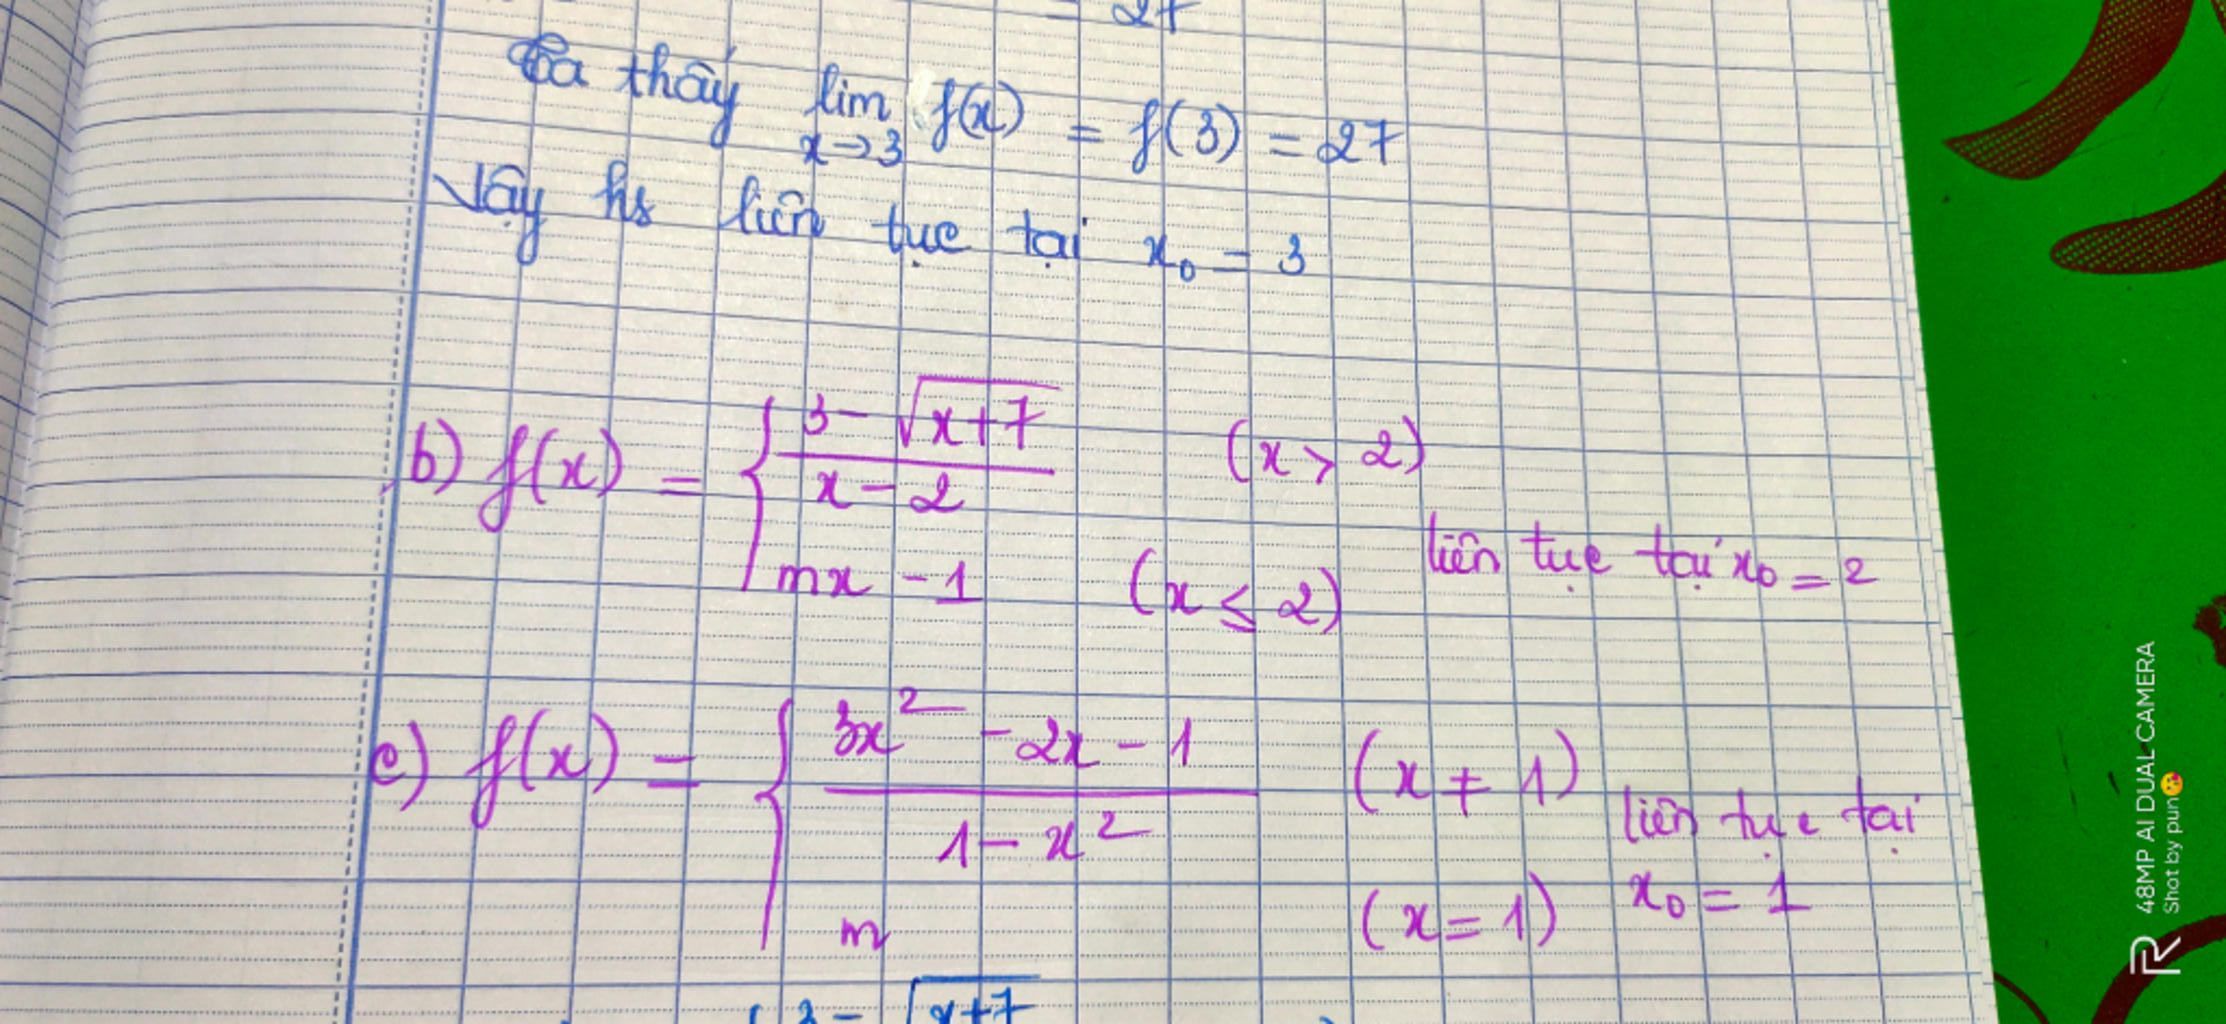 = 27
Ta thấy lim f(x) = f(3) = 27
x→3
Vậy hs liên tục tại x₀ = 3
b) f(x) = { 3 - √x+7 (x > 2)
x - 2
liên tục tại x₀ = 2
mx - 1 (x ≤ 2)
c) f(x) = { 3x² - 2x - 1 (x ≠ 1)
1 - x² liên tục tại
m (x = 1) x₀ = 1
3 - √x+7
48MP AI DUAL CAMERA
Shot by pun😘